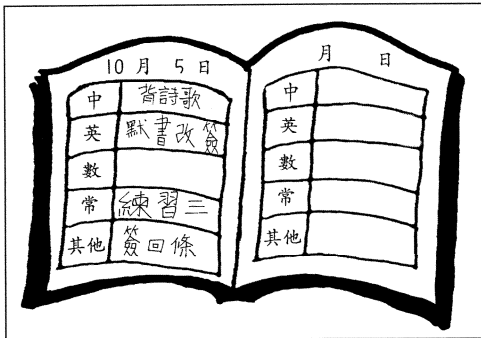 10 月 5 日
中 背詩歌
英 默書改簽
數
常 練習三
其他 簽回條
月 日
中
英
數
常
其他